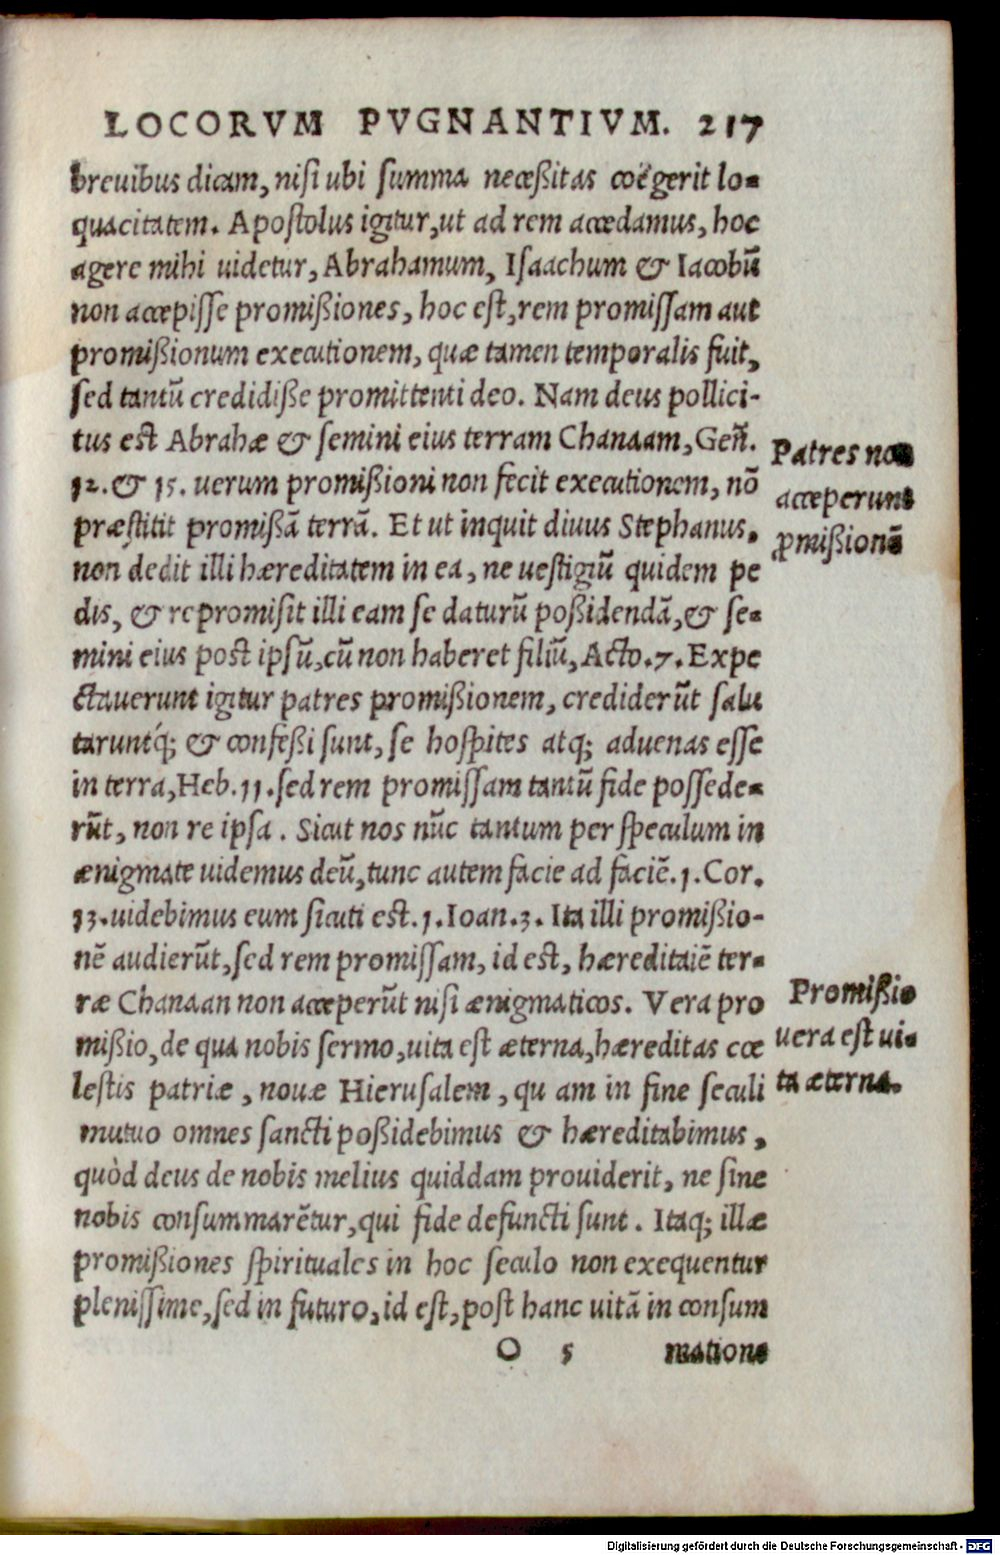 LOCORVM PVGNANTIVM. 217
breuibus dicam, nisi ubi summa necęßitas coëgerit lo-
quacitatem. Apostolus igitur, ut ad rem accedamus, hoc
agere mihi uidetur, Abrahamum, Isaachum & Iacobũ
non accepisse promißiones, hoc est, rem promissam aut
promißionum executionem, quæ tamen temporalis fuit,
sed tantũ credidiße promittenti deo. Nam deus pollici-
tus est Abrahæ & semini eius terram Chanaam, Geñ.
12. & 15. uerum promißioni non fecit executionem, nõ
præstitit promißã terrã. Et ut inquit diuus Stephanus.
non dedit illi hæreditatem in ea, ne uestigiũ quidem pe
dis, & repromisit illi eam se daturũ poßidendã, & se-
mini eius post ipsũ, cũ non haberet filiũ, Acto. 7. Expe
ctauerunt igitur patres promißionem, crediderũt salu
taruntq́; & confeßi sunt, se hospites atq; aduenas esse
in terra, Heb. 11. sed rem promissam tantũ fide possede-
rũt, non re ipsa. Sicut nos nũc tantum per speculum in
ænigmate uidemus deũ, tunc autem facie ad faciẽ. 1. Cor.
13. uidebimus eum sicuti est. 1. Ioan. 3. Ita illi promißio-
nẽ audierũt, sed rem promissam, id est, hæreditatẽ ter-
ræ Chanaan non acceperũt nisi ænigmaticos. Vera pro
mißio, de qua nobis sermo, uita est æterna, hæreditas cœ
lestis patriæ, nouæ Hierusalem, qu am in fine seculi
mutuo omnes sancti poßidebimus & hæreditabimus,
quòd deus de nobis melius quiddam prouiderit, ne sine
nobis consummarẽtur, qui fide defuncti sunt. Itaq; illæ
promißiones spirituales in hoc seculo non exequentur
plenissime, sed in futuro, id est, post hanc uitã in consum
O 5 matione
Patres non
acceperunt
ꝓmißionẽ
Promißio
uera est ui-
ta æterna.
Digitalisierung gefördert durch die Deutsche Forschungsgemeinschaft - DFG